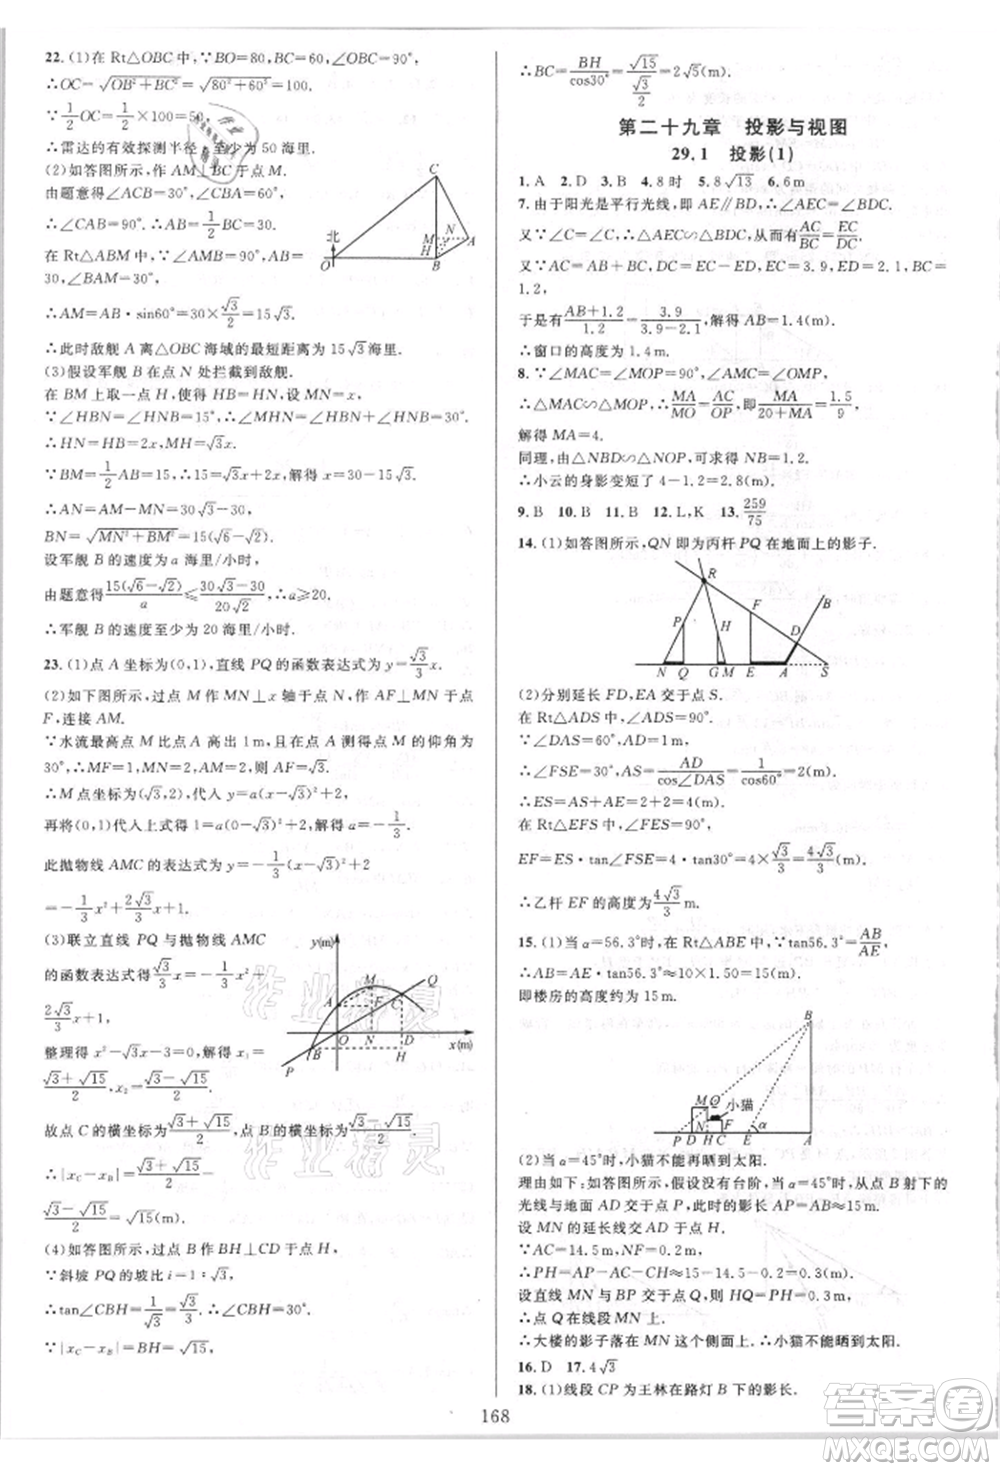 22. (1)在 Rt△OBC 中,∵BO=80,BC=60,∠OBC=90°,
∴OC=√(OB²+BC²)=√(80²+60²)=100.
∵1/2 OC=1/2×100=50,
∴雷达的有效探测半径 r 至少为 50 海里.
(2)如答图所示,作 AM⊥BC 于点 M.
由题意可得∠ACB=30°,∠CBA=60°.
∴∠CAB=90°,∴AB=1/2 BC=30.
在 Rt△ABM 中,∵∠AMB=90°,AB=
30,∠BAM=30°,
∴AM=AB·sin60°=30×√3/2=15√3.
∴此时敌舰 A 离△OBC 海域的最短距离为 15√3海里.
(3)假设军舰 B 在点 N 处拦截到敌舰.
在 BM 上取一点 H,使得 HB=HN,设 MN=x.
∵∠HBN=∠HNB=15°,∴∠MHN=∠HBN+∠HNB=30°.
∴HN=HB=2x,MH=√3x.
∵BM=1/2 AB=15,∴15=√3x+2x,解得 x=30-15√3.
∴AN=AM-MN=30√3-30,
BN=√(MN²+BM²)=15(√6-√2).
设军舰 B 的速度为 a 海里/小时,
由题意得 15(√6-√2)/a≤(30√3-30)/20√2,∴a≥20.
∴军舰 B 的速度至少为 20 海里/小时.
23. (1)点 A 坐标为(0,1),直线 PQ 的函数表达式为 y=√3/3 x.
(2)如下图所示,过点 M 作 MN⊥x 轴于点 N,作 AF⊥MN 于点
F,连接 AM.
∵水流最高点 M 比点 A 高出 1m,且在 A 测得点 M 的仰角为
30°,∴MF=1,MN=2,则 AF=√3.
∴M 点坐标为(√3,2),代入 y=a(x-√3)²+2,
再将(0,1)代入上式得 1=a(0-√3)²+2,解得 a=-1/3.
此抛物线 AMC 的表达式为 y=-1/3(x-√3)²+2
=-1/3x²+2√3/3 x+1.
(3)联立直线 PQ 与抛物线 AMC
的函数表达式得√3/3 x=-1/3x²+
2√3/3 x+1,
整理得 x²-√3x-3=0,解得 x₁=
(√3+√15)/2,x₂=(√3-√15)/2,
故点 C 的横坐标为(√3+√15)/2,点 B 的横坐标为(√3-√15)/2.
∴|x_C-x_B|=(√3+√15)/2-
(√3-√15)/2=√15(m).
(4)如答图所示,过点 B 作 BH⊥CD 于点 H,
∵斜坡 PQ 的坡比 i=1:√3,
∴tan∠CBH=1/√3=√3/3,∴∠CBH=30°.
∵|x_C-x_B|=BH=√15,
北
C
N
M
A
H
O
B
y(m)
M
Q
A
F
C
B
O
N
D
x(m)
P
H
∴BC=BH/cos30°=√15/(√3/2)=2√5(m).
第二十九章 投影与视图
29.1 投影(1)
1. A 2. D 3. B 4. 8 时 5. 8√13 6. 6m
7. 由于阳光是平行光线,即 AE∥BD,∴∠AEC=∠BDC.
又∵∠C=∠C,∴△AEC∽△BDC,从而有AC/BC=EC/DC.
又∵AC=AB+BC,DC=EC-ED,EC=3.9,ED=2.1,BC=
1.2,
于是有(AB+1.2)/1.2=3.9/(3.9-2.1),解得 AB=1.4(m).
∴窗口的高度为 1.4m.
8. ∵∠MAC=∠MOP=90°,∠AMC=∠OMP,
∴△MAC∽△MOP,∴MA/MO=AC/OP,即MA/(20+MA)=1.5/9,
解得 MA=4.
同理,由△NBD∽△NOP,可求得 NB=1.2.
∴小云的身影变短了 4-1.2=2.8(m).
9. B 10. B 11. B 12. L,K 13. 259/75
14. (1)如答图所示,QN 即为丙杆 PQ 在地面上的影子.
R
P
H
F
B
D
N
Q
G
E
A
S
(2)分别延长 FD,EA 交于点 S.
在 Rt△ADS 中,∠ADS=90°.
∵∠DAS=60°,∴∠S=30°.
又∵AD=1,∴AS=AD/cos∠DAS=1/cos60°=2.
∴ES=AS+AE=2+2=4.
在 Rt△EFS 中,∠FES=90°,
EF=ES·tan∠FSE=4·tan30°=4×√3/3=4√3/3(m).
∴乙杆 EF 的高度为4√3/3m.
15. (1)当 α=56.3°时,在 Rt△ABE 中,∵tan56.3°=AB/AE,
∴AB=AE·tan56.3°≈10×1.50=15(m).
即楼房的高度约为 15m.
B
M
Q
小猫
N
F
α
P
H
C
E
A
(2)当 α=45°时,小猫不能再晒到太阳.
理由如下:如答图所示,假设没有台阶,当 α=45°时,从点 B 射下的
光线与地面 AD 交于点 P,此时的影长 AP=AB=15m.
设 MN 的延长线交 AD 于点 H.
∵AC=14.5m,NF=0.2m,
∴PH=AP-AC-CH≈15-14.5-0.2=0.3(m).
设直线 MN 与 BP 交于点 Q,则 HQ=PH=0.3m,
∴点 Q 在线段 MN 上.
∴大楼的影子落在 MN 这个侧面上.∴小猫不能晒到太阳.
16. D 17. 4√3
18. (1)线段 CP 为王林在路灯 B 下的影长.
168
作业精灵
作业精灵
答案圈
MXQE.COM